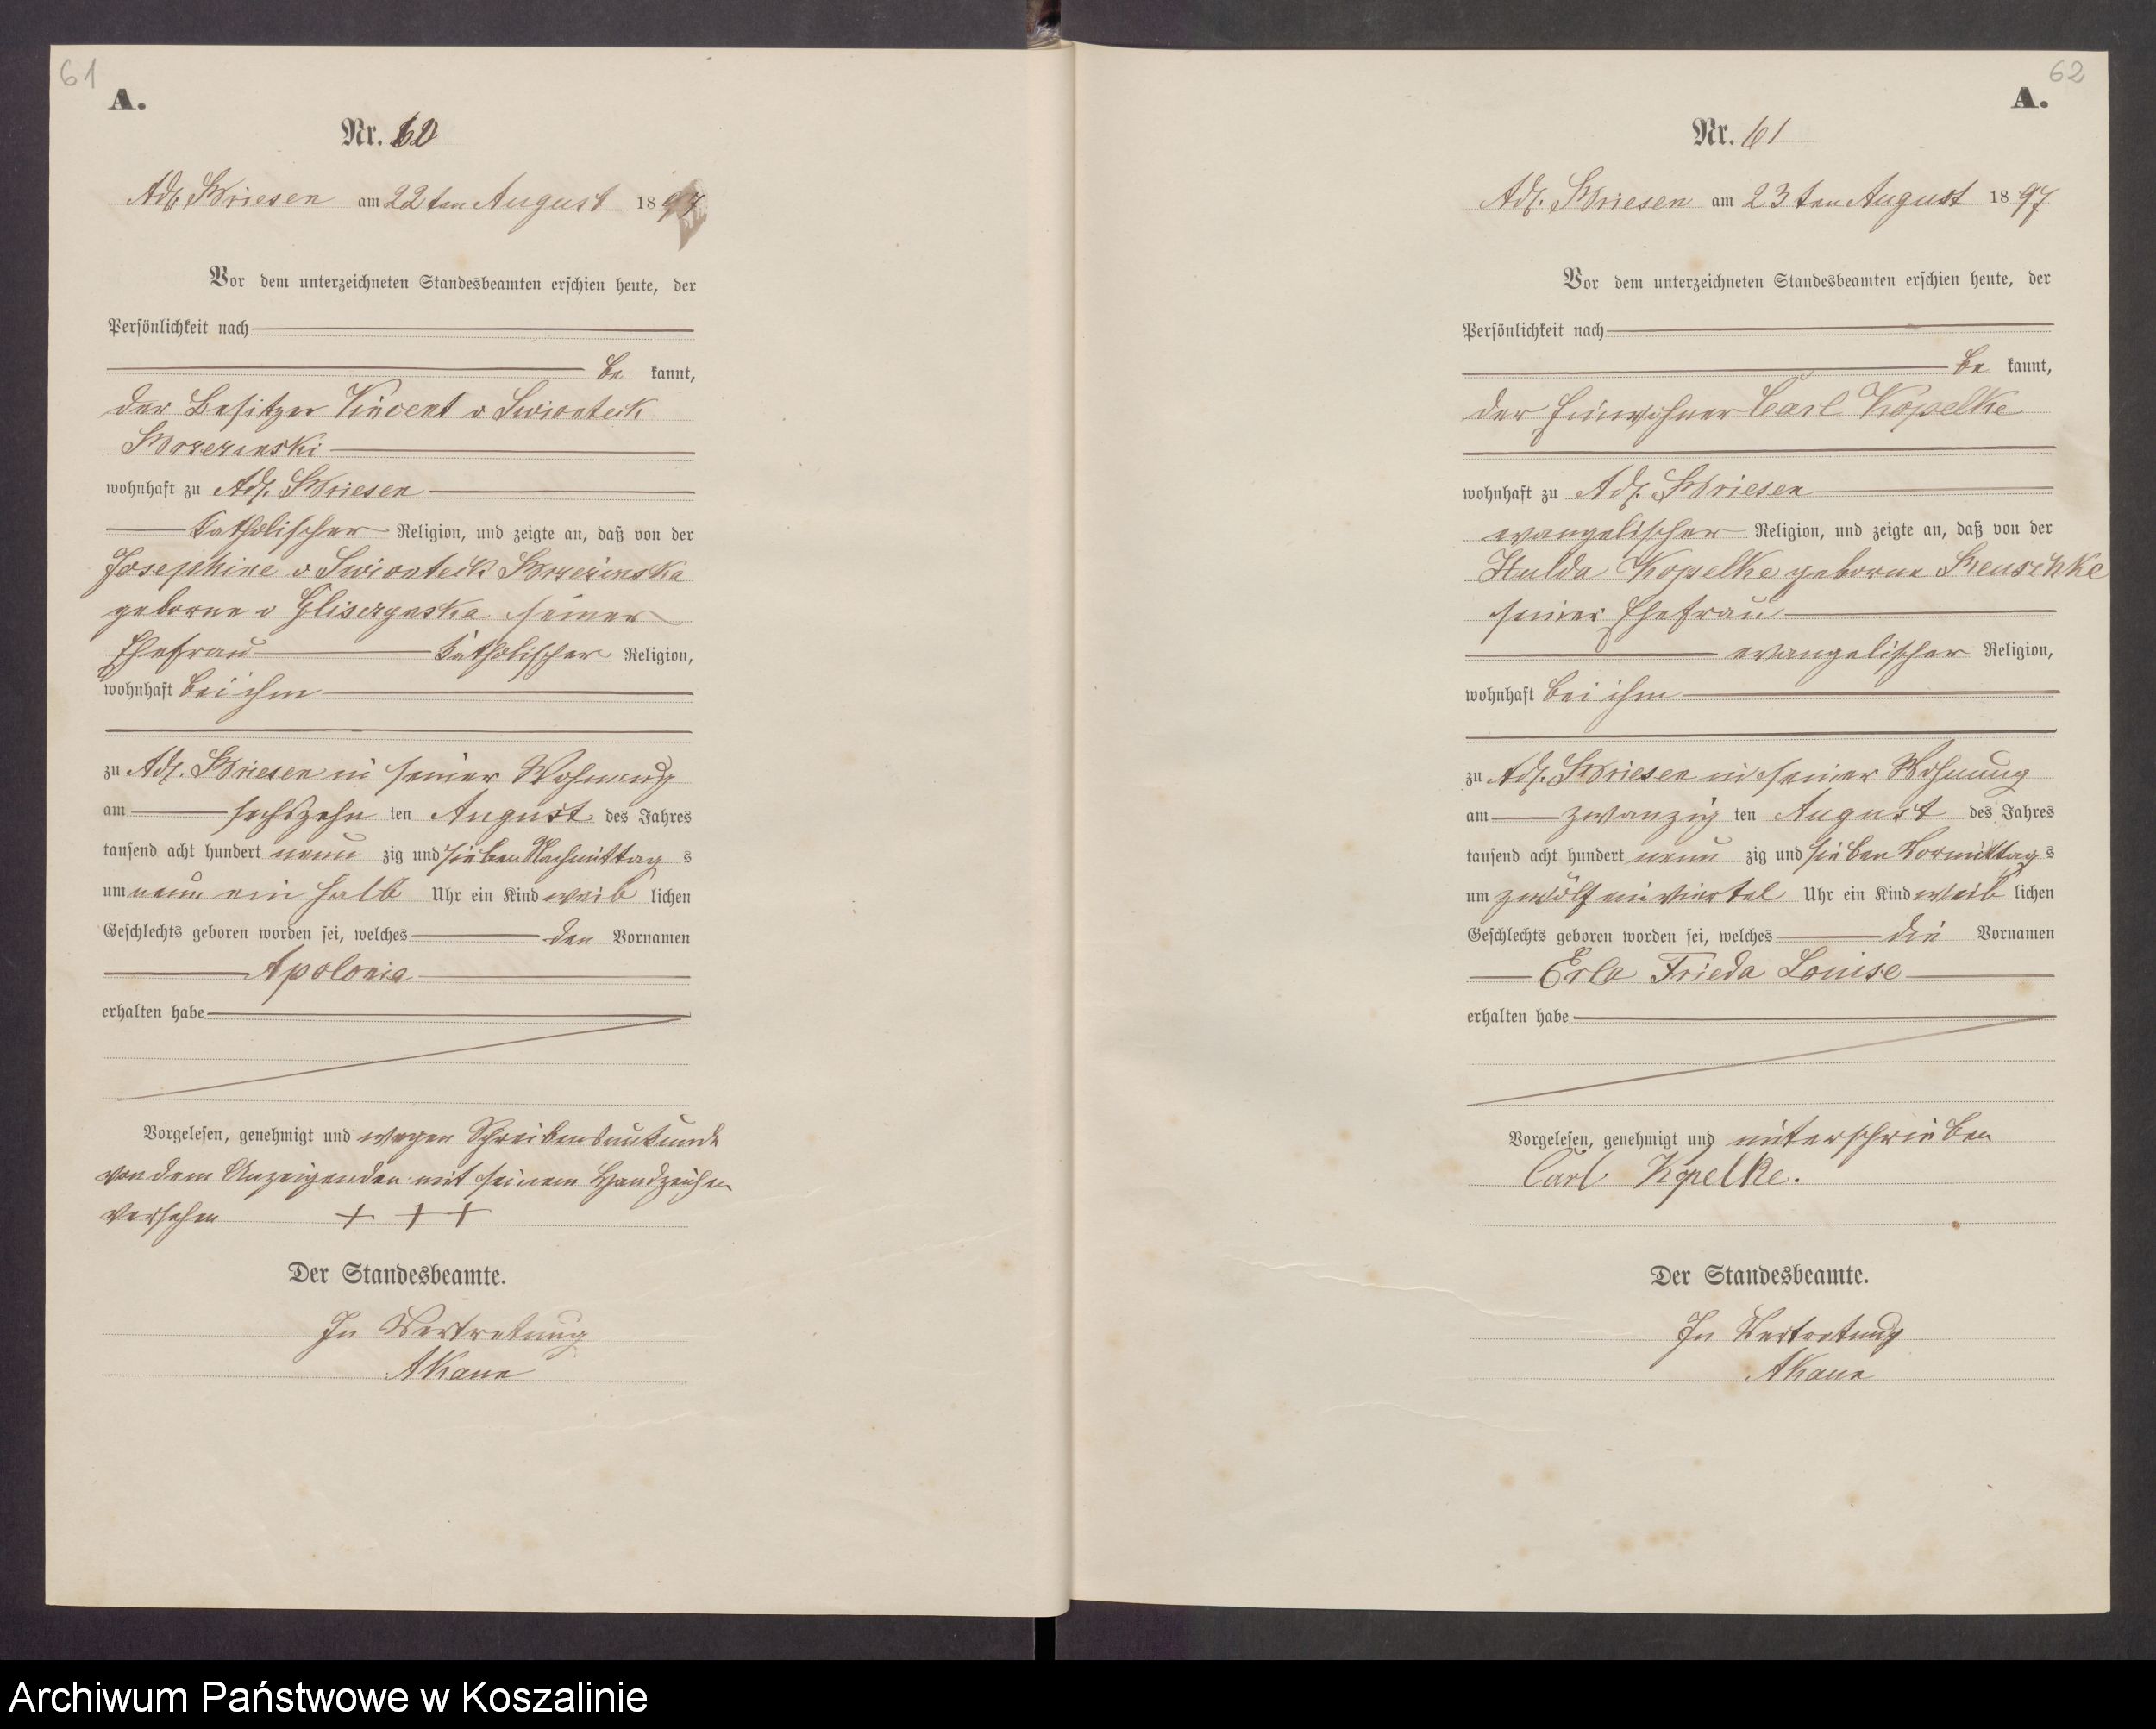 61
A.
Nr. 60
Adl. Briesen am 22ten August 1897
Vor dem unterzeichneten Standesbeamten erschien heute, der
Persönlichkeit nach
be kannt,
der Besitzer Vincent v Swionteck
wohnhaft zu Adl. Briesen
katholischer Religion, und zeigte an, daß von der
Josephine v Swionteck
geborne v seiner
Ehefrau katholischer Religion,
wohnhaft bei ihm
zu Adl. Briesen in seiner Wohnung
am sechszehn ten August des Jahres
tausend acht hundert neun zig und sieben Nachmittag s
um neun ein halb Uhr ein Kind weib lichen
Geschlechts geboren worden sei, welches den Vornamen
Apolonia
erhalten habe
Vorgelesen, genehmigt und wegen Schreibensunkunde
von dem Anzeigenden mit seinem Handzeichen
versehen + + +
Der Standesbeamte.
In Vertretung
62
A.
Nr. 61
Adl. Briesen am 23ten August 1897
Vor dem unterzeichneten Standesbeamten erschien heute, der
Persönlichkeit nach
be kannt,
der Einwohner Carl Kopelke
wohnhaft zu Adl. Briesen
evangelischer Religion, und zeigte an, daß von der
Hulda Kopelke geborne
seiner Ehefrau
evangelischer Religion,
wohnhaft bei ihm
zu Adl. Briesen in seiner Wohnung
am zwanzig ten August des Jahres
tausend acht hundert neun zig und sieben Vormittag s
um zwölf ein viertel Uhr ein Kind weib lichen
Geschlechts geboren worden sei, welches die Vornamen
Erla Frieda Louise
erhalten habe
Vorgelesen, genehmigt und unterschrieben
Carl Kopelke.
Der Standesbeamte.
In Vertretung
Archiwum Państwowe w Koszalinie